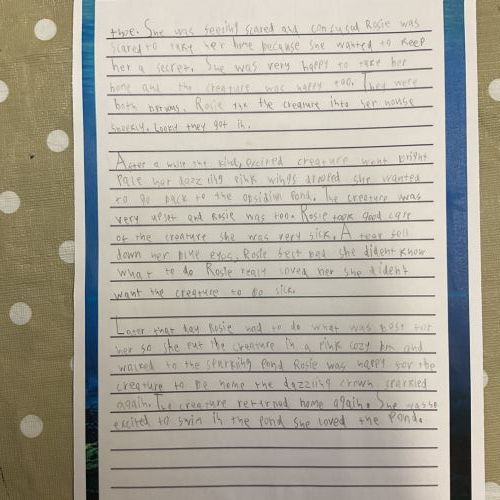 She was feeling scared and confused Rosie was
scared to take her home because she wanted to keep
her a secret. She was very happy to take her
home and the creature was happy too. They were
both nervus. Rosie the creature into her house
sneekly. Lucky they got in.
After a while the kind, excited creature went bright
pale her dazzling pink wings droped she wanted
to go back to the obsidian Pond. The creature was
very upset and Rosie was too. Rosie took good care
of the creature she was very sick. A tear fell
down her blue eyes. Rosie felt bad she dident know
what to do Rosie realy loved her she dident
want the creature to be sick.
Later that day Rosie had to do what was best for
her so she put the creature in a pink cozy and
walked to the sparkling Pond Rosie was happy for the
creature to be home the dazzling crown sparkled
again. The creature returned home again. She was
excited to swim in the Pond she loved the Pond.